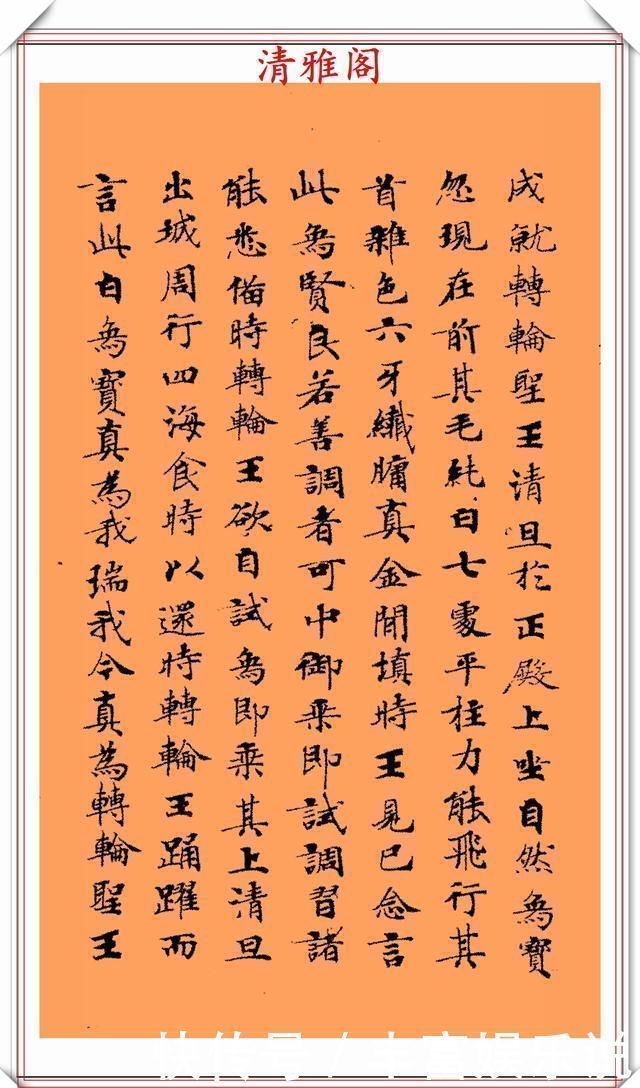 清雅阁
成就轉輪聖王清旦於正殿上坐自然象寶
忽現在前其毛純白七處平柱力能飛行其
首雜色六牙纖𦟛真金間填時王見已念言
此象賢良若善調者可中御乘即試調習諸
能悉備時轉輪王欲自試象即乘其上清旦
出城周行四海食時以還時轉輪王踊躍而
言此白象寶真為我瑞我今真為轉輪聖王
快传号/